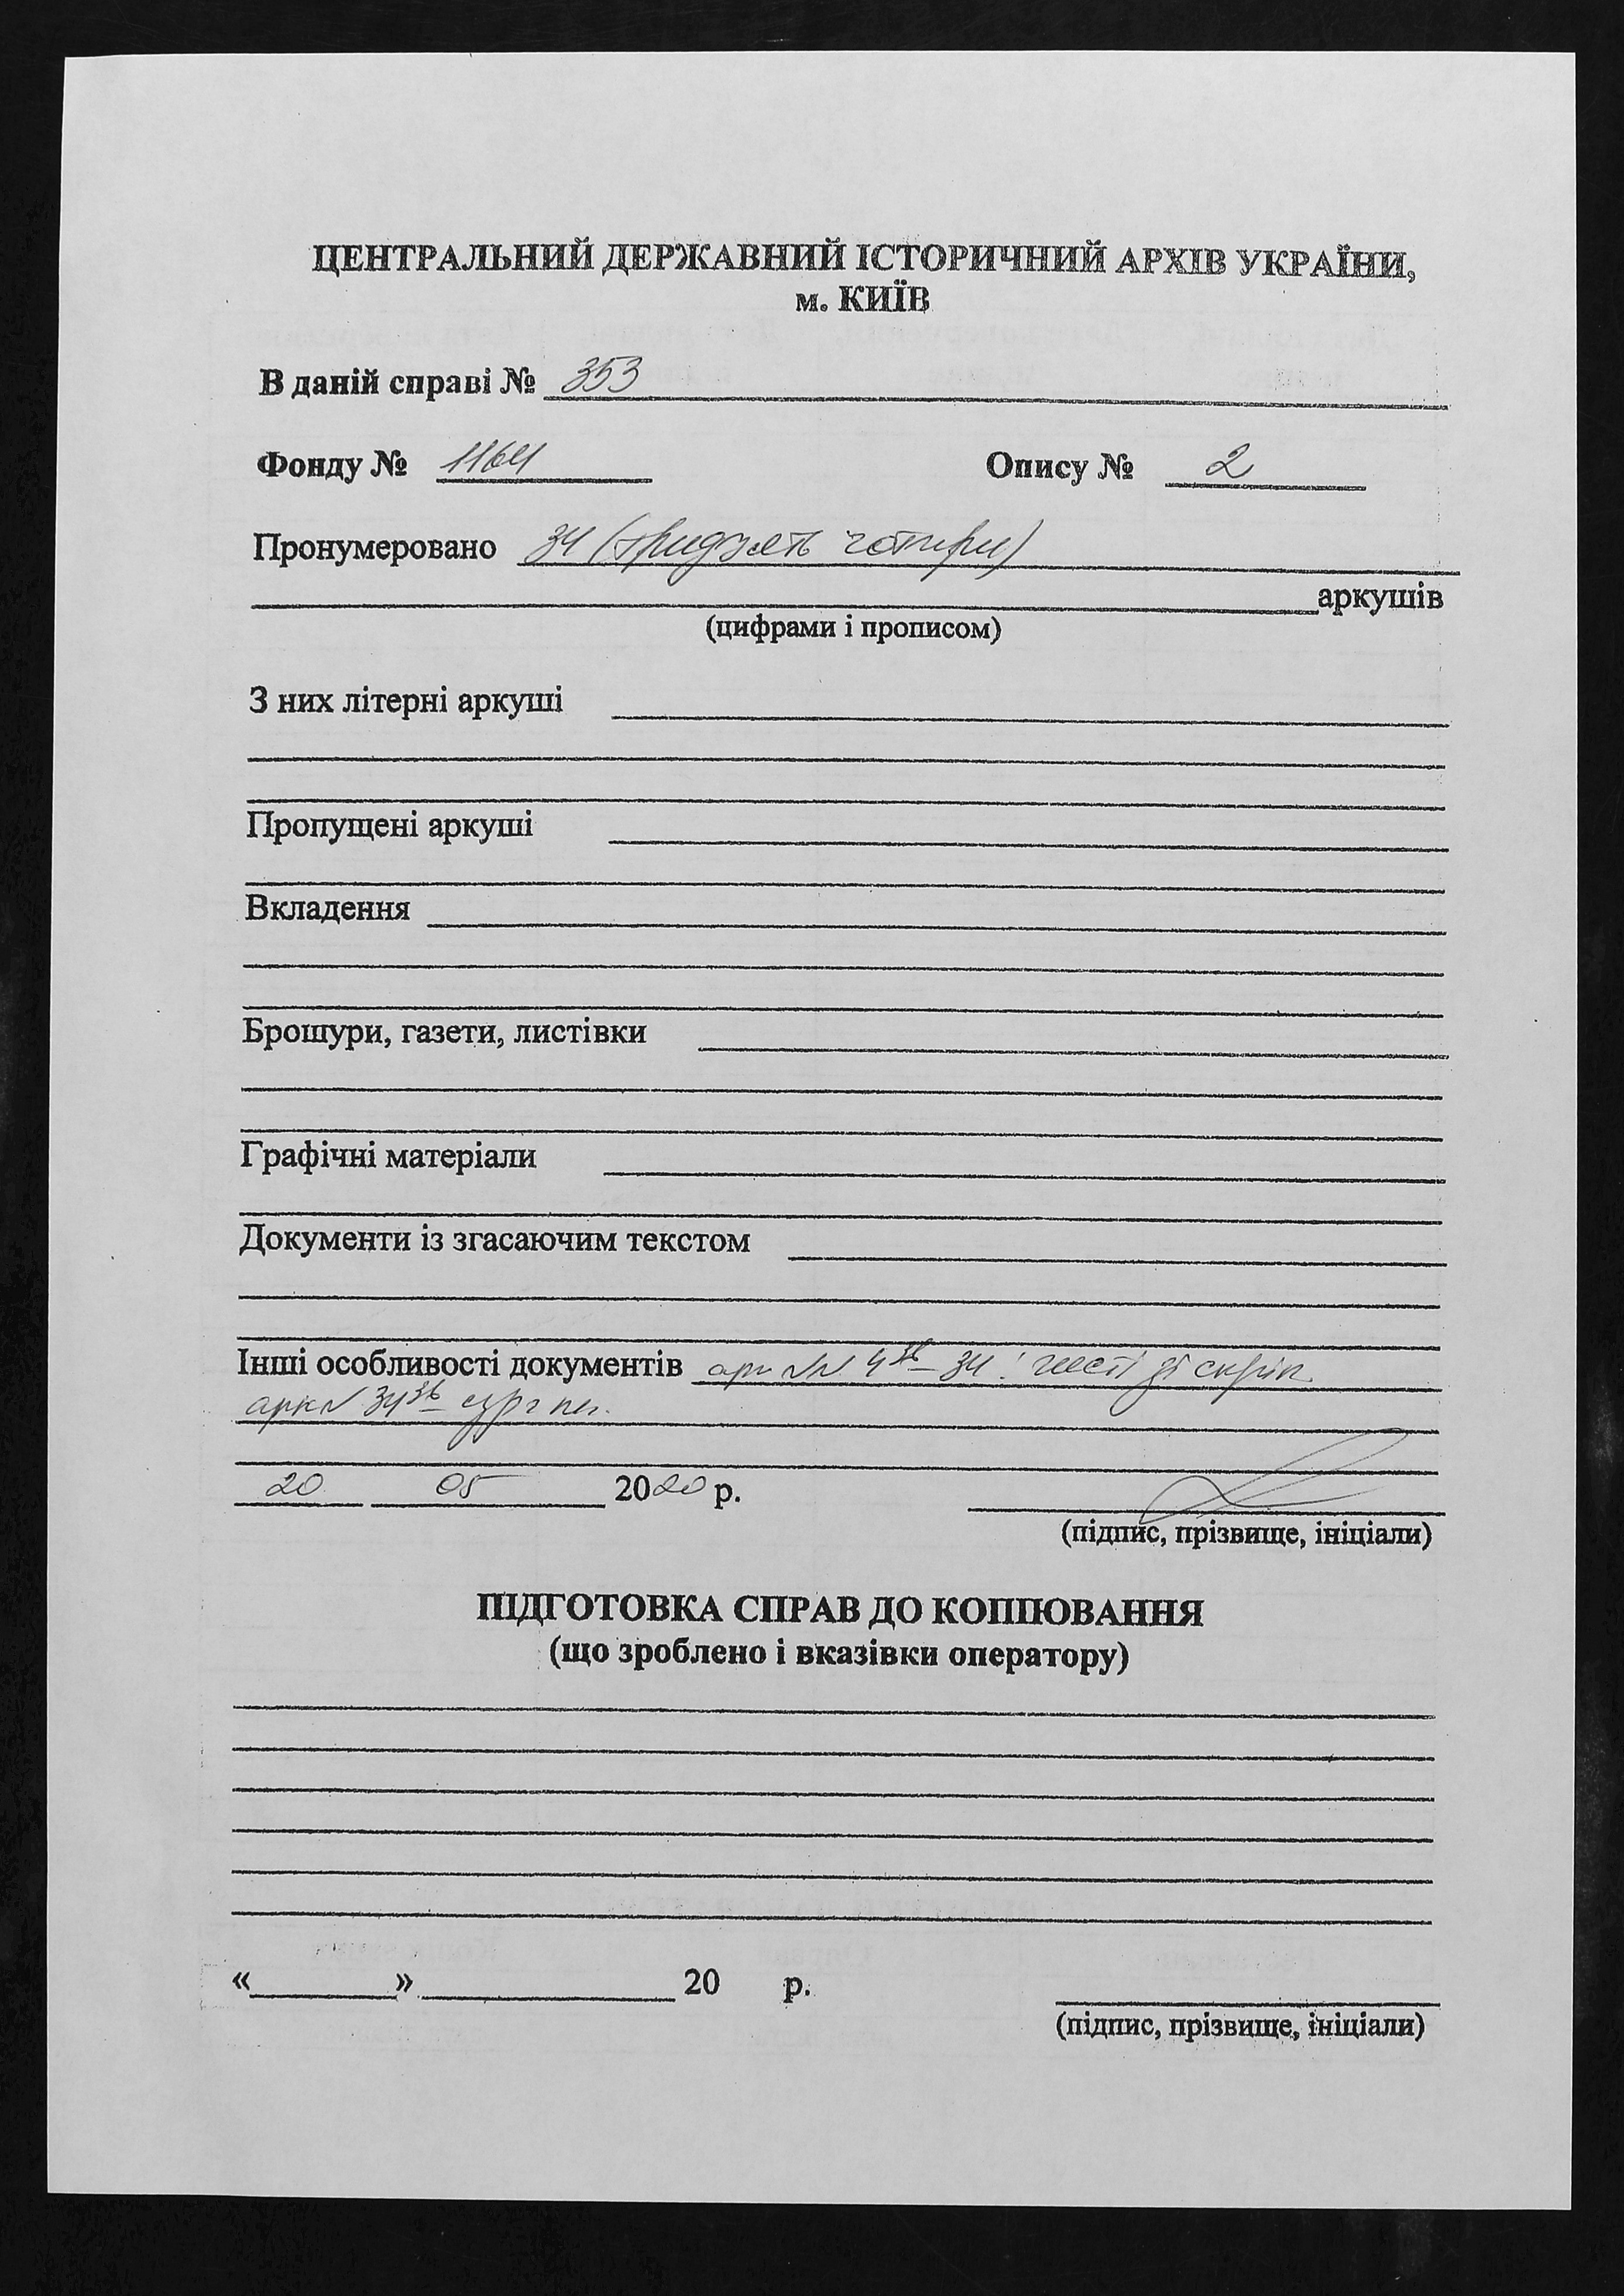 ЦЕНТРАЛЬНИЙ ДЕРЖАВНИЙ ІСТОРИЧНИЙ АРХІВ УКРАЇНИ,
м. КИЇВ
В даній справі № 353
Фонду № 1164 Опису № 2
Пронумеровано 34 (тридцять чотири)
аркушів
(цифрами і прописом)
З них літерні аркуші
Пропущені аркуші
Вкладення
Брошури, газети, листівки
Графічні матеріали
Документи із згасаючим текстом
Інші особливості документів арк №№ 4зв – 34:
арк № 34зв
20 05 2020 р.
(підпис, прізвище, ініціали)
ПІДГОТОВКА СПРАВ ДО КОПІЮВАННЯ
(що зроблено і вказівки оператору)
« » 20 р.
(підпис, прізвище, ініціали)